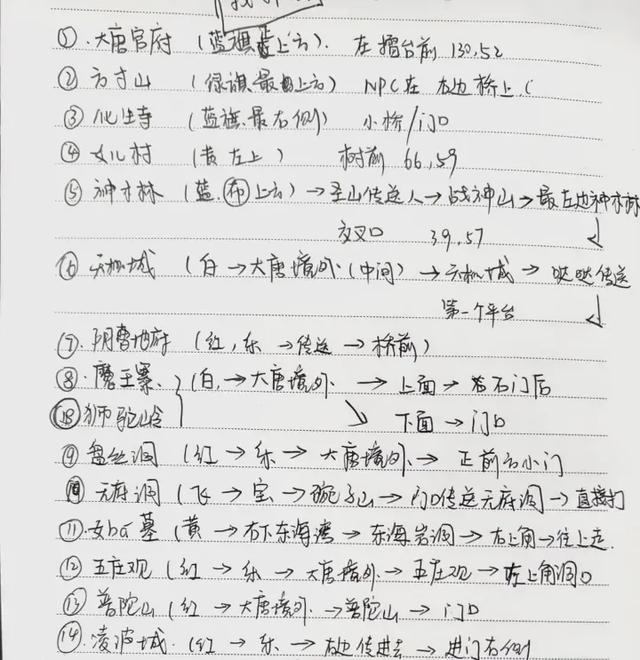 ①.大唐官府 (蓝旗 上方). 在擂台前 130,52
② 方寸山 (绿旗.最 上方) NPC在 右边桥上.(
③ 化生寺 (蓝旗.最右侧) 小桥/门口
④ 女儿村 (黄 左上) 树前 66,59
⑤ 神木林 (蓝.布上方)→圣山传送人→战神山→最左边神木林
交叉口 39,57 ↓
⑥ 天机城 (白→大唐境外(中间)→天机城→哒哒传送
第一个平台 ↓
⑦.阴曹地府 (红,乐→传送→桥前)
⑧.魔王寨、(白,→大唐境外.→上面→ 石门后
⑱狮驼岭 ↘ 下面→门口
⑨ 盘丝洞 (红→乐→大唐境外.→正前方小门
⑩ 无底洞 (飞→宝→碗子山→门口传送无底洞→直接打
⑪.女娲墓 (黄→右下东海湾→东海岩洞→右上角→往上走.
⑫ 五庄观 (红→乐→大唐境外→五庄观→ 上角洞口
⑬ 普陀山 (红→大唐境外.→普陀山→门口
⑭.凌波城.(红→乐.→右边传进去→进门右侧